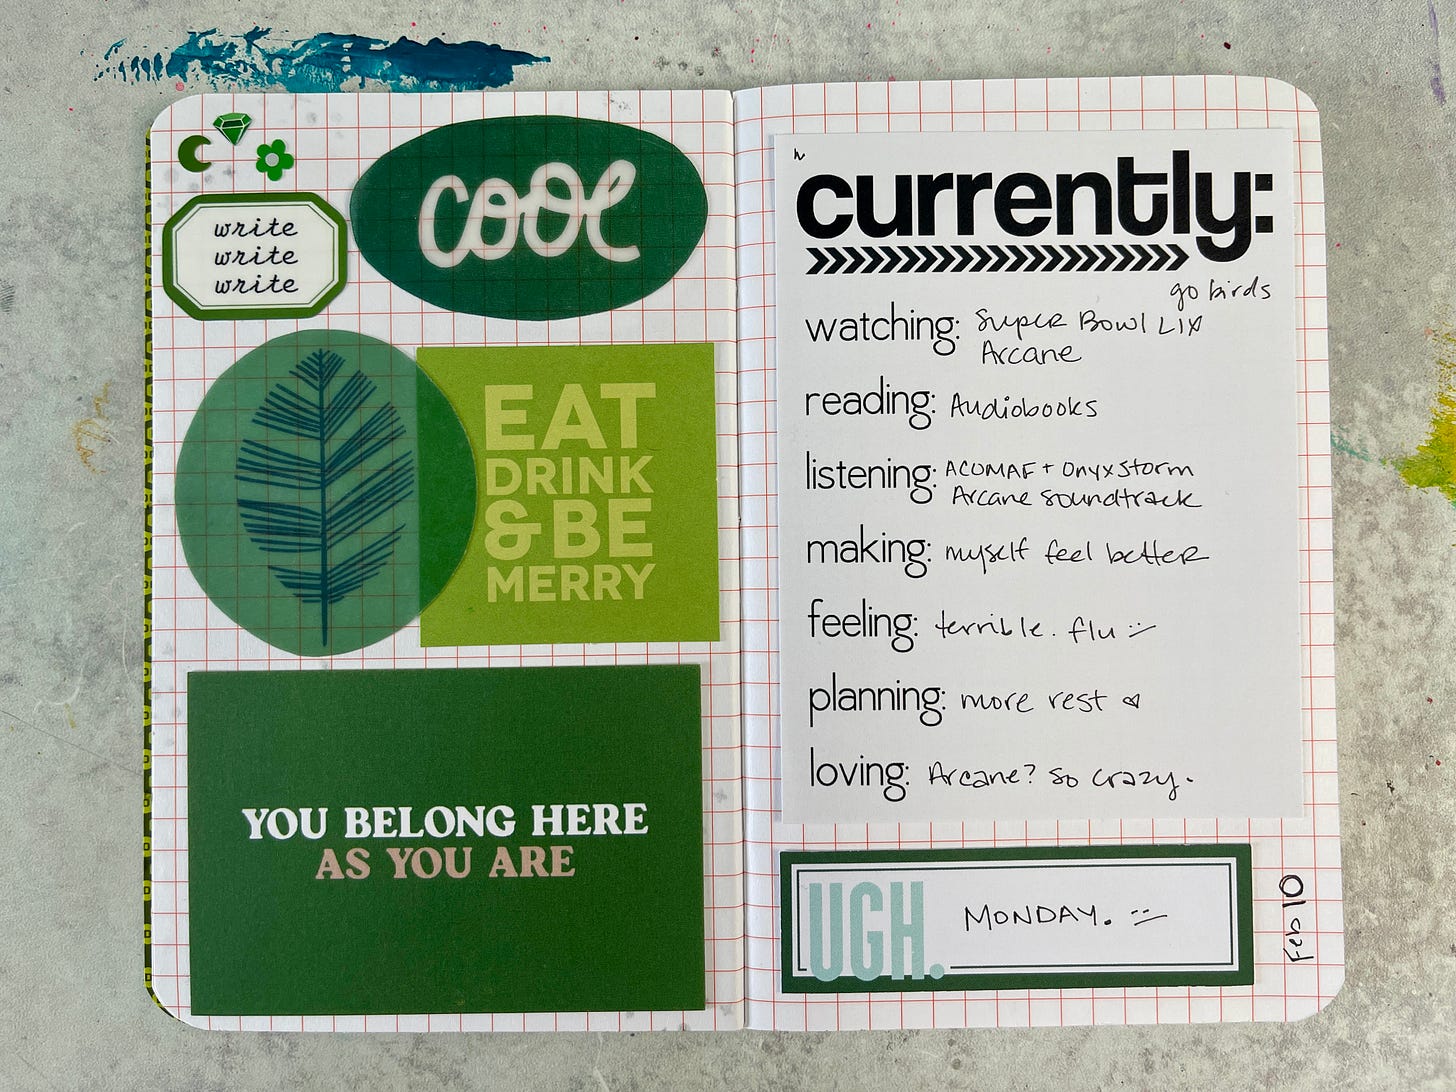 write
write
write
cool
EAT
DRINK
& BE
MERRY
YOU BELONG HERE
AS YOU ARE
currently:
go birds
watching: Super Bowl LIX
Arcane
reading: Audiobooks
listening: ACOMAF + Onyx Storm
Arcane Soundtrack
making: myself feel better
feeling: terrible. flu :-/
planning: more rest
loving: Arcane? So crazy.
UGH. MONDAY. :-/
Feb 10